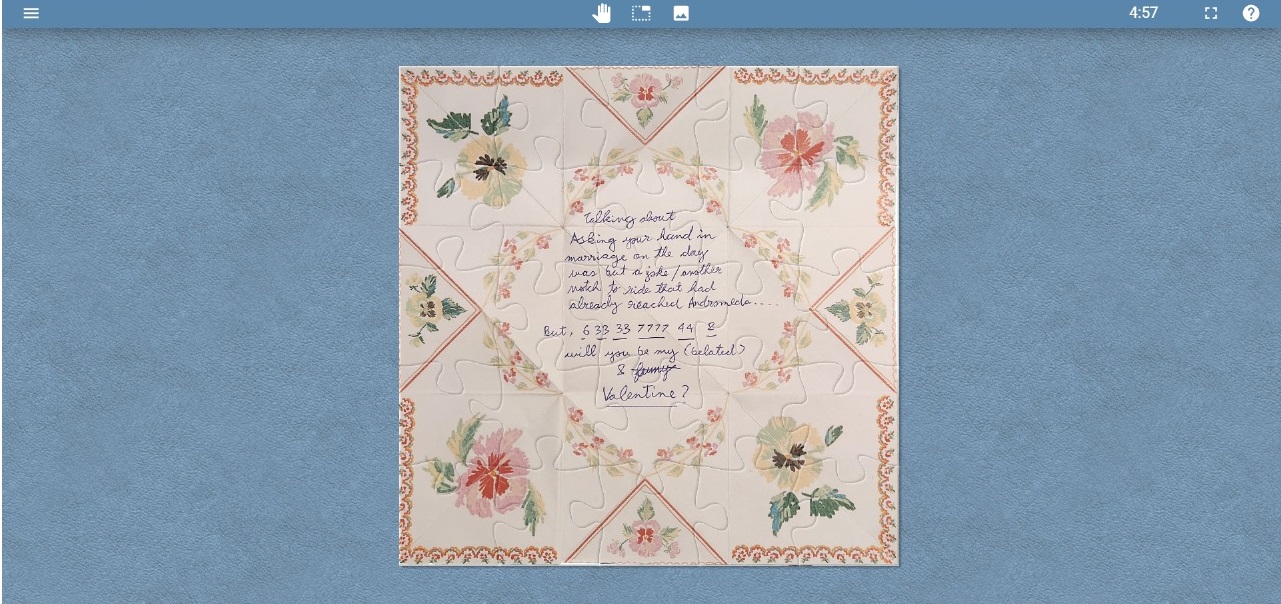 4:57
Talking about
Asking your hand in
marriage on the day
was but a joke / another
notch to ride that had
already reached Andromeda....
But, 6 33 33 7777 44 8
will you be my (belated)
&
Valentine?